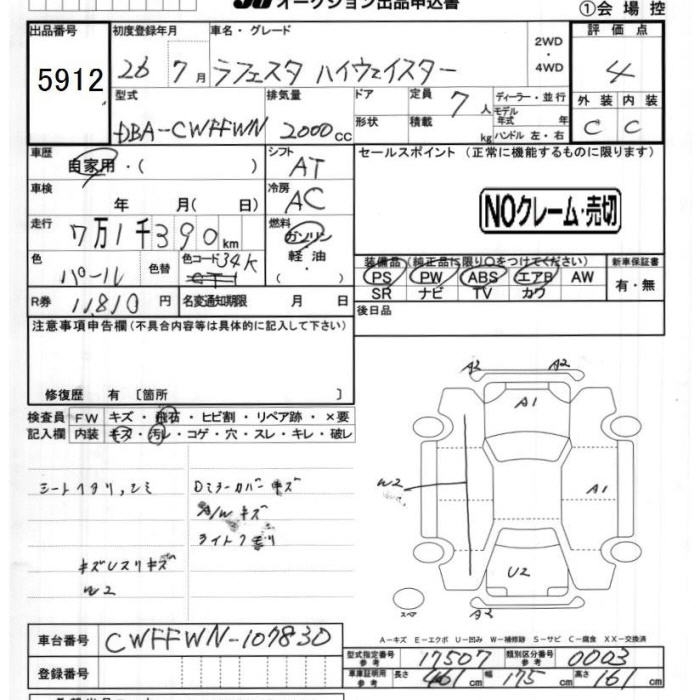 オークション出品申込書
①会場控
出品番号
5912
初度登録年月
26 7月
車名・グレード
ラフェスタ ハイウェイスター
2WD・4WD
評価点
4
型式
DBA-CWFFWN
排気量
2000cc
ドア
形状
定員 7人
積載 kg
ディーラー・並行
モデル年式 年
ハンドル 左・右
外装 内装
C C
車歴
自家用・( )
シフト
AT
セールスポイント (正常に機能するものに限ります)
車検
年 月( 日)
冷房
AC
NOクレーム・売切
走行
7万1千390km
燃料
ガソリン
軽油
( )
色
パール
色替
色コード34K
装備品 (純正品に限り○をつけてください)
新車保証書
PS PW ABS エアB AW
SR ナビ TV カワ
有・無
R券 11,810円
名変通知期限 月 日
後日品
注意事項申告欄(不具合内容等は具体的に記入して下さい)
修復歴 有 〔箇所 〕
検査員 FW キズ・飛石・ヒビ割・リペア跡・×要
記入欄 内装 キズ・汚レ・コゲ・穴・スレ・キレ・破レ
シートヘタリ,シミ
Dミラーカバーキズ
A/Wキズ
ライトクモリ
キズUスリキズ
W2
A2 A2
A1
W2
A1
U2
A2
スペア
A-キズ E-エクボ U-凹み W-補修跡 S-サビ C-腐食 XX-交換済
車台番号
CWFFWN-107830
登録番号
型式指定番号 参考 17507
類別区分番号 参考 0003
車庫証明用 参考 長さ 461cm 幅 175cm 高さ 161cm